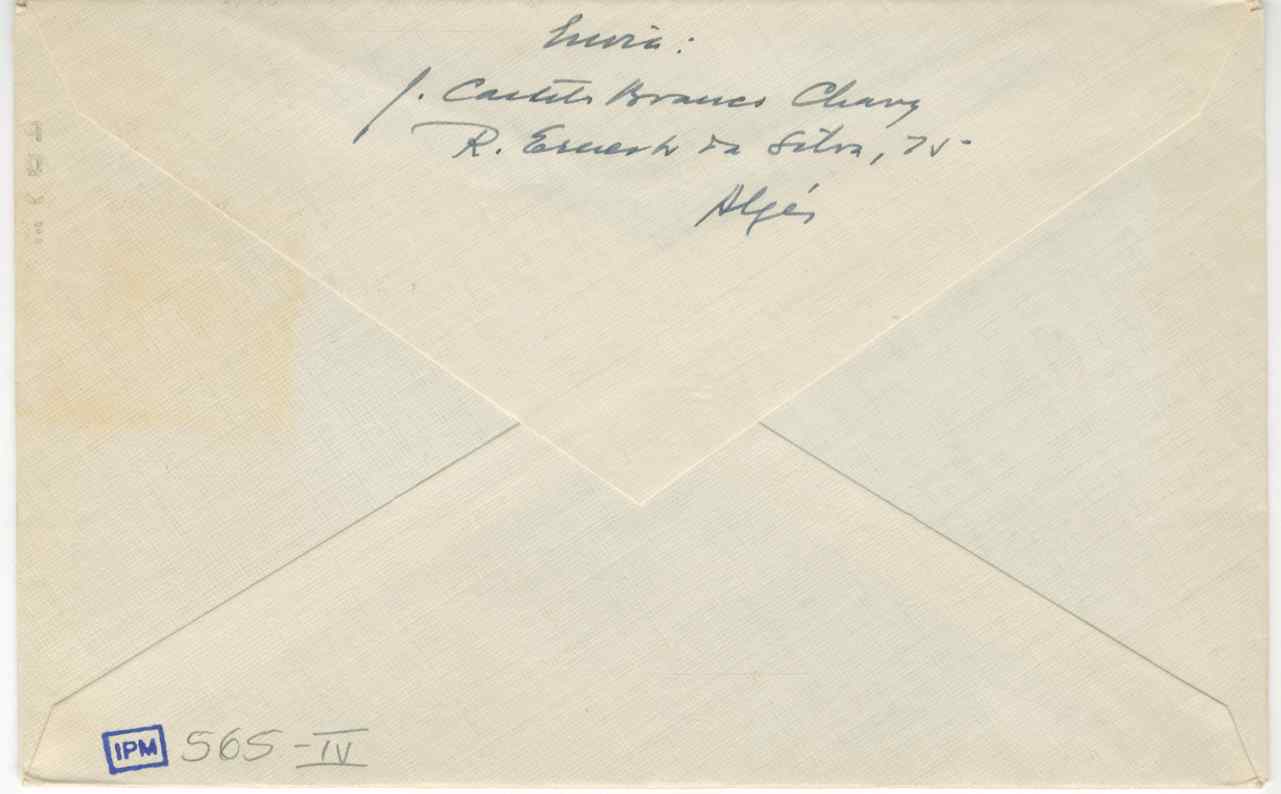 Envia:
J. Castelo Branco Chaves
R. Ernesto da Silva, 75-
Algés
IPM 565-IV